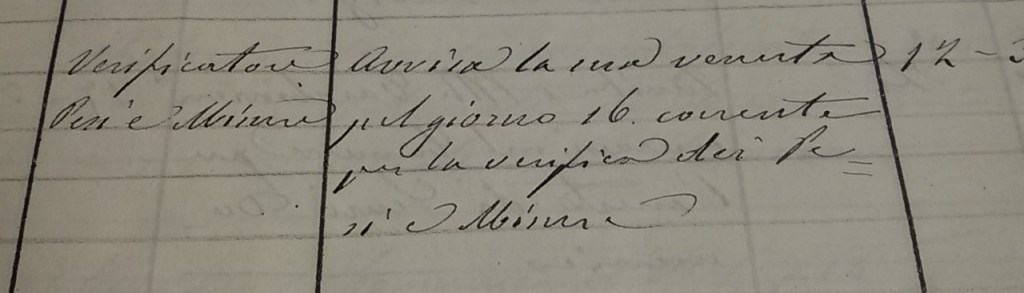 Verificatore Avvisa la sua venuta 12 -
Pesi e Misure pel giorno 16. corrente
per la verifica dei Pe=
si e Misure